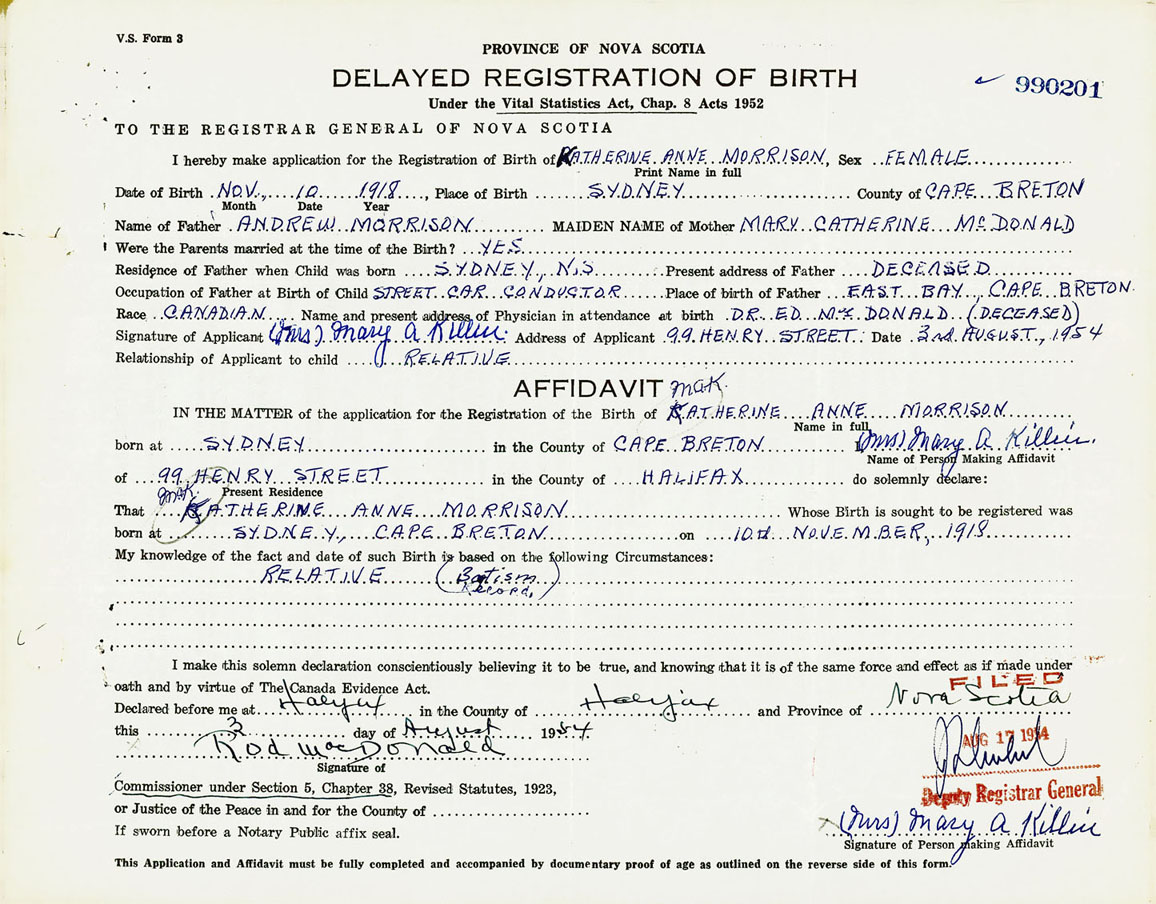 V.S. Form 3
PROVINCE OF NOVA SCOTIA
DELAYED REGISTRATION OF BIRTH
990201
Under the Vital Statistics Act, Chap. 8 Acts 1952
TO THE REGISTRAR GENERAL OF NOVA SCOTIA
I hereby make application for the Registration of Birth of KATHERINE ANNE MORRISON, Sex FEMALE
Print Name in full
Date of Birth NOV., 10 1918, Place of Birth SYDNEY County of CAPE BRETON
Month Date Year
Name of Father ANDREW MORRISON MAIDEN NAME of Mother MARY CATHERINE McDONALD
Were the Parents married at the time of the Birth? YES
Residence of Father when Child was born SYDNEY, N.S Present address of Father DECEASED
Occupation of Father at Birth of Child STREET CAR CONDUCTOR Place of birth of Father EAST BAY, CAPE BRETON
Race CANADIAN Name and present address of Physician in attendance at birth DR. ED. McDONALD (DECEASED)
Signature of Applicant (Mrs) Mary A Killin Address of Applicant 99 HENRY STREET Date 3rd AUGUST, 1954
Relationship of Applicant to child RELATIVE
AFFIDAVIT MAK
IN THE MATTER of the application for the Registration of the Birth of KATHERINE ANNE MORRISON
Name in full
born at SYDNEY in the County of CAPE BRETON I (Mrs) Mary A Killin.
Name of Person Making Affidavit
of 99 HENRY STREET in the County of HALIFAX do solemnly declare:
MAK Present Residence
That KATHERINE ANNE MORRISON Whose Birth is sought to be registered was
born at SYDNEY, CAPE BRETON on 10th NOVEMBER, 1918
My knowledge of the fact and date of such Birth is based on the following Circumstances:
RELATIVE (Batism
Record,)
I make this solemn declaration conscientiously believing it to be true, and knowing that it is of the same force and effect as if made under
oath and by virtue of The Canada Evidence Act.
FILED
Declared before me at Halifax in the County of Halifax and Province of Nova Scotia
this 3 day of August 1954
AUG 17 1954
Rod MacDonald
Signature of
Commissioner under Section 5, Chapter 38, Revised Statutes, 1923,
Deputy Registrar General
or Justice of the Peace in and for the County of
(Mrs) Mary A Killin
If sworn before a Notary Public affix seal.
Signature of Person making Affidavit
This Application and Affidavit must be fully completed and accompanied by documentary proof of age as outlined on the reverse side of this form.